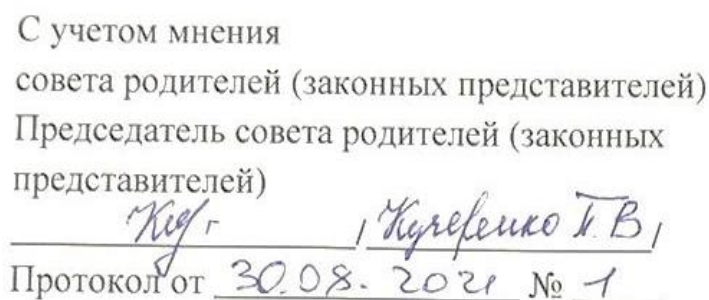 С учетом мнения
совета родителей (законных представителей)
Председатель совета родителей (законных
представителей)
/ Кучеренко П. В /
Протокол от 30.08. 2021 № 1